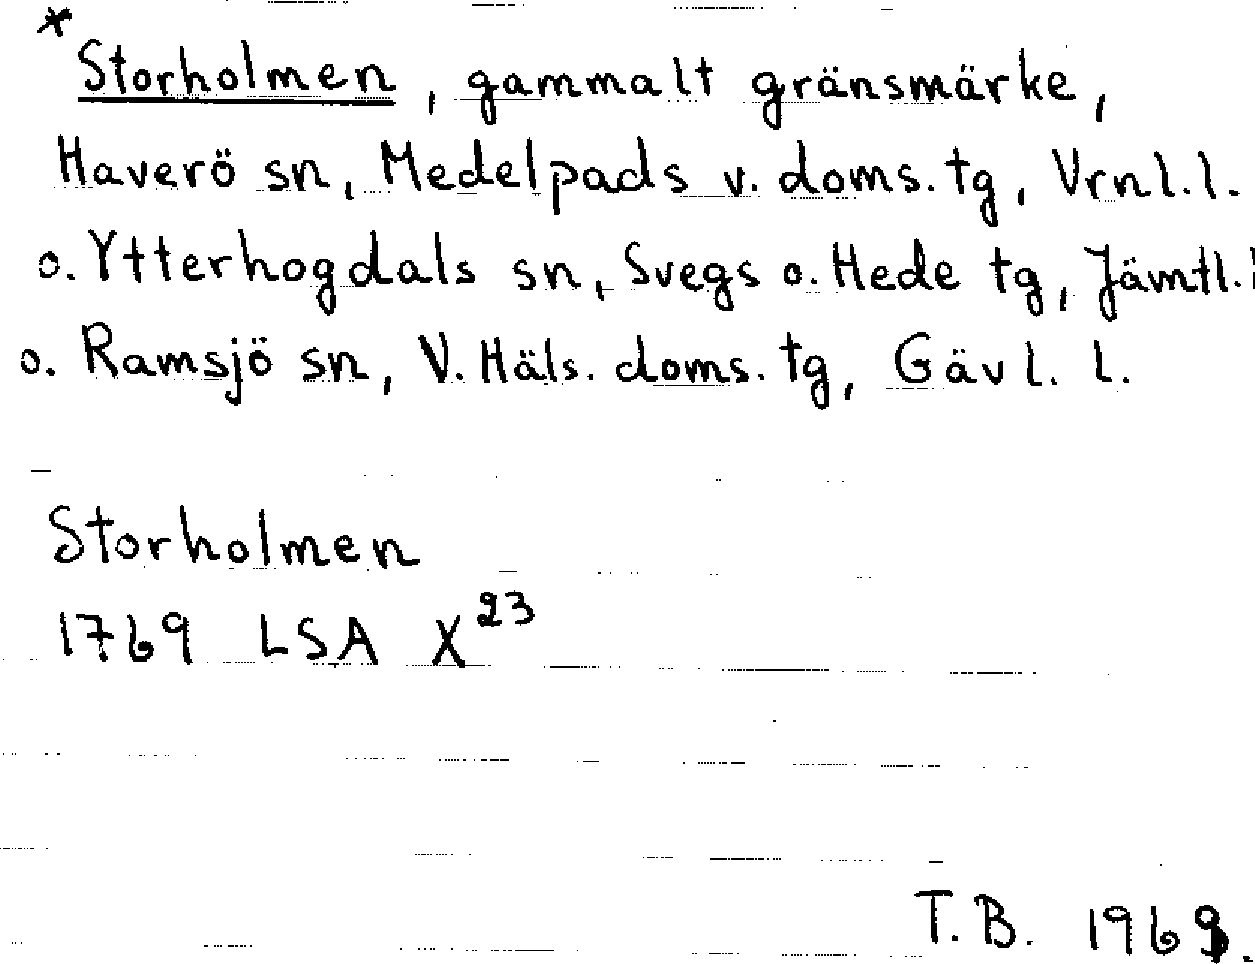 * Storholmen, gammalt gränsmärke,
Haverö sn, Medelpads v. doms. tg, Vrnl. l.
o. Ytterhogdals sn, Svegs o. Hede tg, Jämtl. l
o. Ramsjö sn, V. Häls. doms. tg, Gävl. l.
Storholmen
1769 LSA X²³
T.B. 1969.